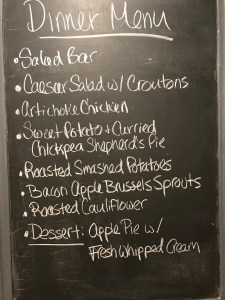 Dinner Menu
• Salad Bar
• Caesar Salad w/ Croutons
• Artichoke Chicken
• Sweet Potato + Curried
Chickpea Shepherd's Pie
• Roasted Smashed Potatoes
• Bacon Apple Brussels Sprouts
• Roasted Cauliflower
• Dessert: Apple Pie w/
Fresh Whipped Cream